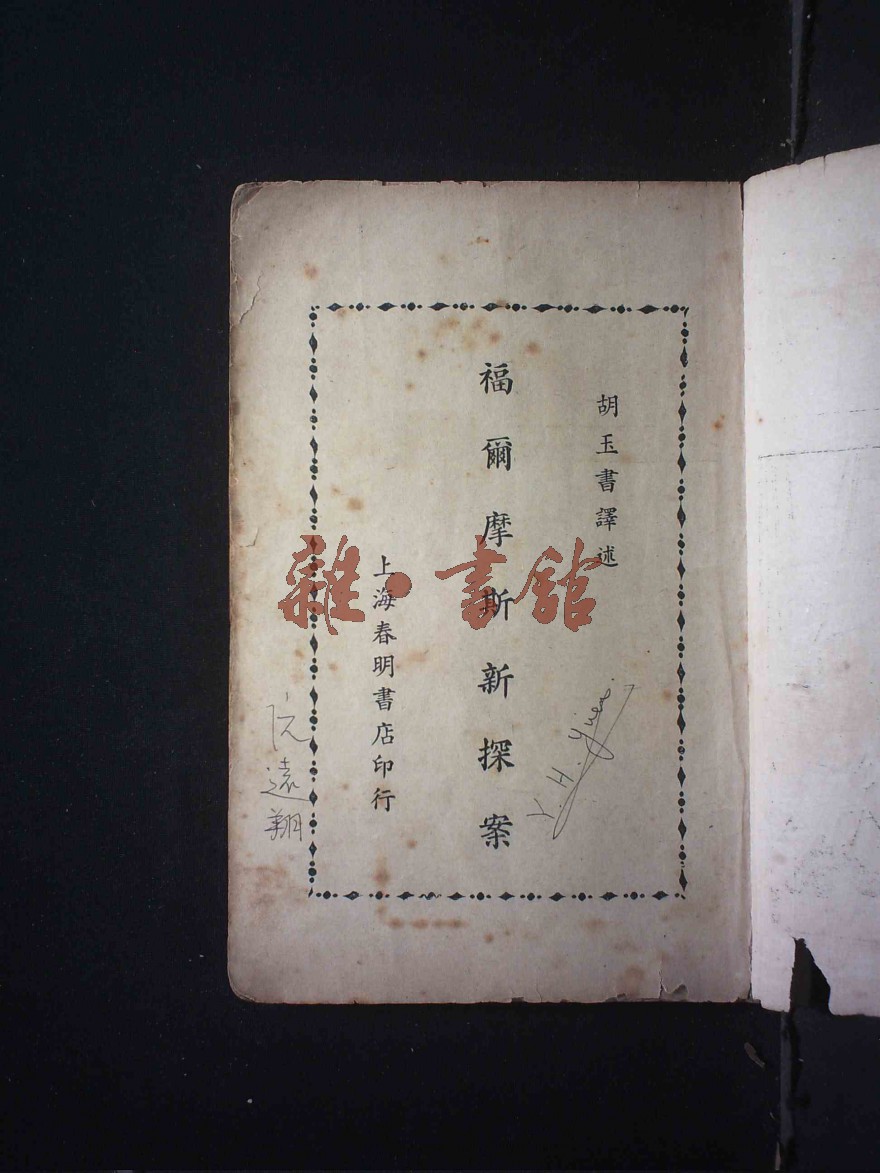 胡玉書譯述
福爾摩斯新探案
上海春明書店印行
雜·書館
Y. H. Yuen.
阮遠翔